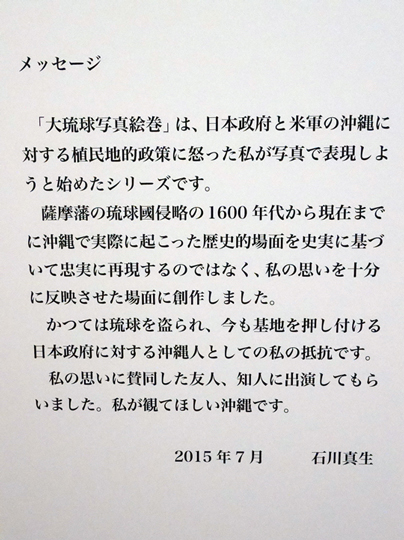 メッセージ
「大琉球写真絵巻」は、日本政府と米軍の沖縄に
対する植民地的政策に怒った私が写真で表現しよ
うと始めたシリーズです。
薩摩藩の琉球國侵略の1600年代から現在まで
に沖縄で実際に起こった歴史的場面を史実に基づ
いて忠実に再現するのではなく、私の思いを十分
に反映させた場面に創作しました。
かつては琉球を盗られ、今も基地を押し付ける
日本政府に対する沖縄人としての私の抵抗です。
私の思いに賛同した友人、知人に出演してもら
いました。私が観てほしい沖縄です。
2015年7月 石川真生